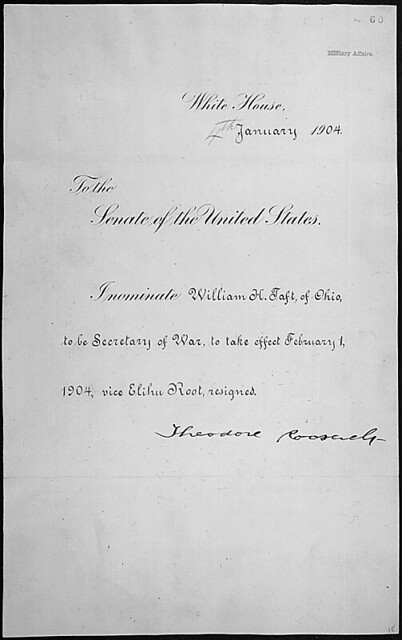 60
Military Affairs.
White House,
4th January 1904.
To the
Senate of the United States.
I nominate William H. Taft, of Ohio,
to be Secretary of War, to take effect February 1,
1904, vice Elihu Root, resigned.
Theodore Roosevelt